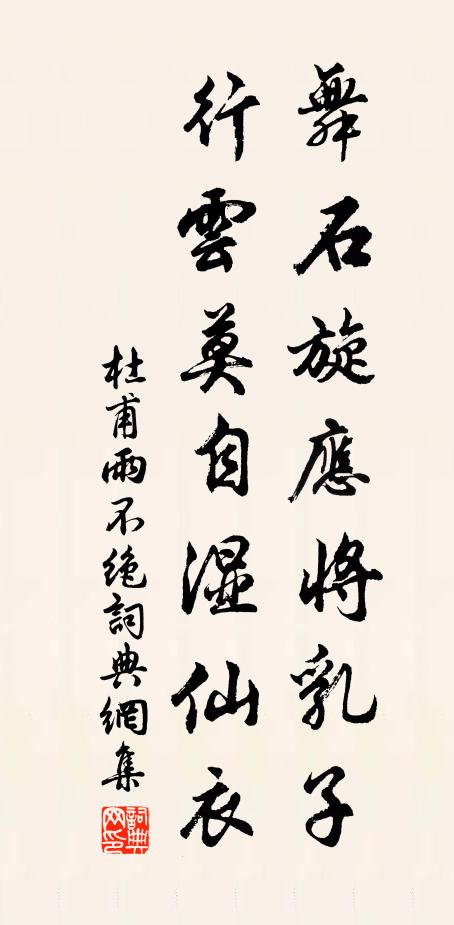 舞石旋應將乳子
行雲莫自濕仙衣
杜甫雨不絕詞典網集
詞典網印